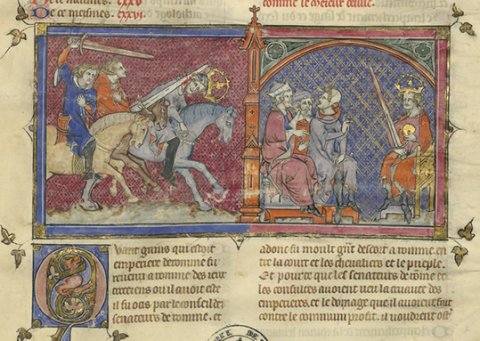 De ce meismes. lxxvi.
comme le
uant gaius qui estoit
emperiere de romme fu
reuenu a romme des ieux
ou il auoit est
il fu ocis par le conseil des
senateurs de romme. et
adont fu moult gnt descort a romme en
tre la court et les cheualiers et le pueple.
Et pource que les senateurs de rome et
les consultes auoient veu la cruaute des
emperieres. et le domage que il auoient fait
contre le commun profit. il